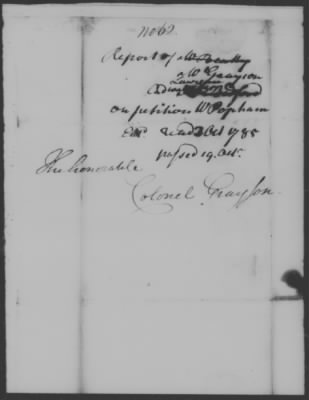 No 62
Report of Mr
Mr Grayson
Lawrance
on petition W Popham
Ent. Read Oct 1785
passed 19. Oct.
The honorable
Colonel Grayson.